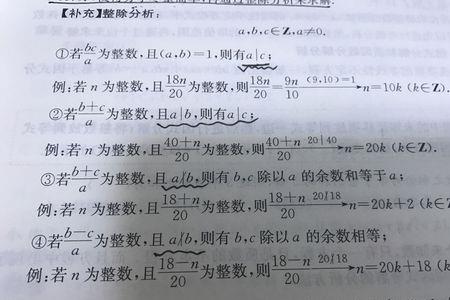 【补充】整除分析:
a,b,c∈Z,a≠0.
①若bc/a为整数,且(a,b)=1,则有a|c;
例:若n为整数,且18n/20为整数,则18n/20=9n/10 (9,10)=1→n=10k (k∈Z).
②若b+c/a为整数,且a|b,则有a|c;
例:若n为整数,且40+n/20为整数,则40+n/20 20|40→n=20k (k∈Z).
③若b+c/a为整数,且a∤b,则有b,c除以a的余数和等于a;
例:若n为整数,且18+n/20为整数,则18+n/20 20∤18→n=20k+2 (k∈Z
④若b-c/a为整数,且a∤b,则有b,c除以a的余数相等;
例:若n为整数,且18-n/20为整数,则18-n/20 20∤18→n=20k+18 (k